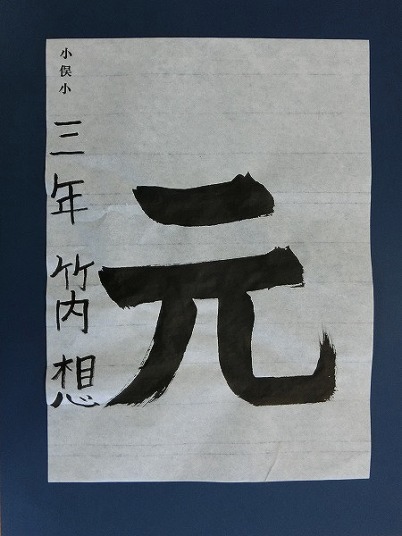 元
小俣小
三年 竹内 想